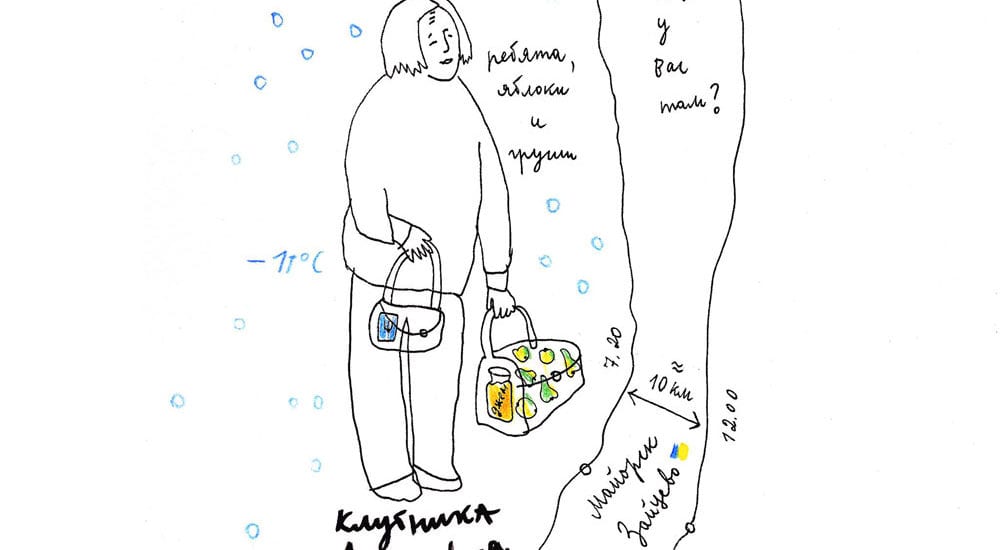 ребята,
яблоки
и
груши
у
вас
там?
-11°C
7.20
≈
10 км
12.00
Майорск
Зайцево
Клубника